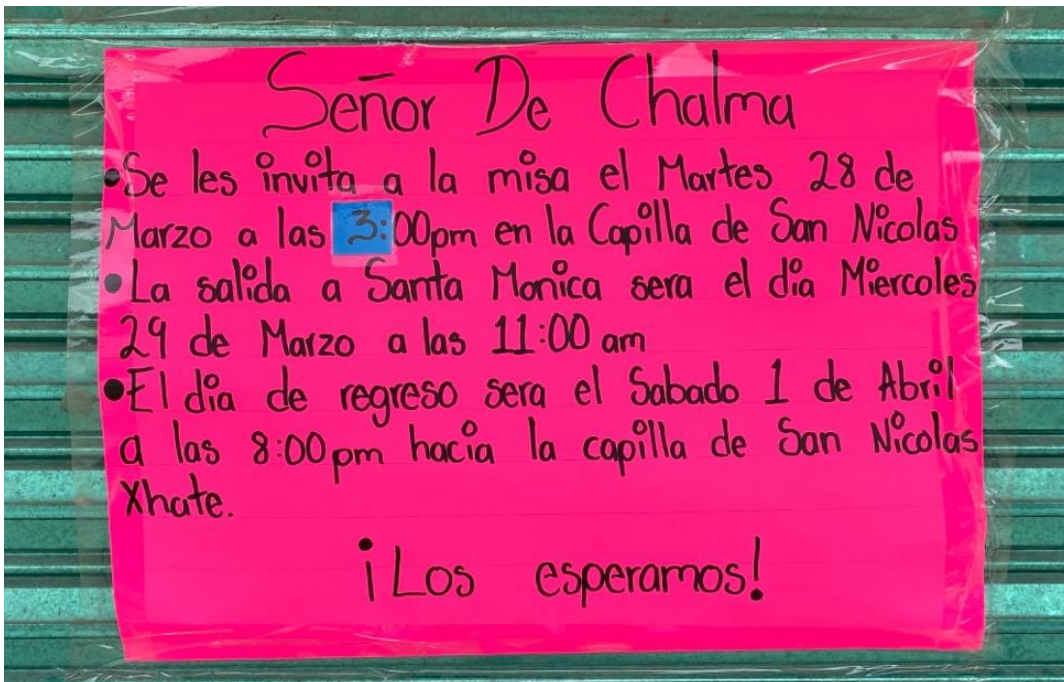 Señor De Chalma
•Se les invita a la misa el Martes 28 de
Marzo a las 3:00pm en la Capilla de San Nicolas
•La salida a Santa Monica sera el dia Miercoles
29 de Marzo a las 11:00 am
•El dia de regreso sera el Sabado 1 de Abril
a las 8:00pm hacia la capilla de San Nicolas
Xhate.
¡Los esperamos!